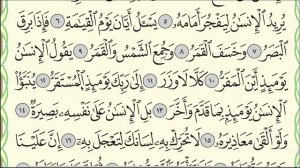 يُرِيدُ الْإِنسَانُ لِيَفْجُرَ أَمَامَهُ ۝٥ يَسْـَٔلُ أَيَّانَ يَوْمُ الْقِيَٰمَةِ ۝٦ فَإِذَا بَرِقَ
الْبَصَرُ ۝٧ وَخَسَفَ الْقَمَرُ ۝٨ وَجُمِعَ الشَّمْسُ وَالْقَمَرُ ۝٩ يَقُولُ الْإِنسَٰنُ
يَوْمَئِذٍ أَيْنَ الْمَفَرُّ ۝١٠ كَلَّا لَا وَزَرَ ۝١١ إِلَىٰ رَبِّكَ يَوْمَئِذٍ الْمُسْتَقَرُّ ۝١٢ يُنَبَّؤُا
الْإِنسَٰنُ يَوْمَئِذٍ بِمَا قَدَّمَ وَأَخَّرَ ۝١٣ بَلِ الْإِنسَٰنُ عَلَىٰ نَفْسِهِ بَصِيرَةٌ ۝١٤
وَلَوْ أَلْقَىٰ مَعَاذِيرَهُ ۝١٥ لَا تُحَرِّكْ بِهِ لِسَانَكَ لِتَعْجَلَ بِهِ ۝١٦ إِنَّ عَلَيْنَا